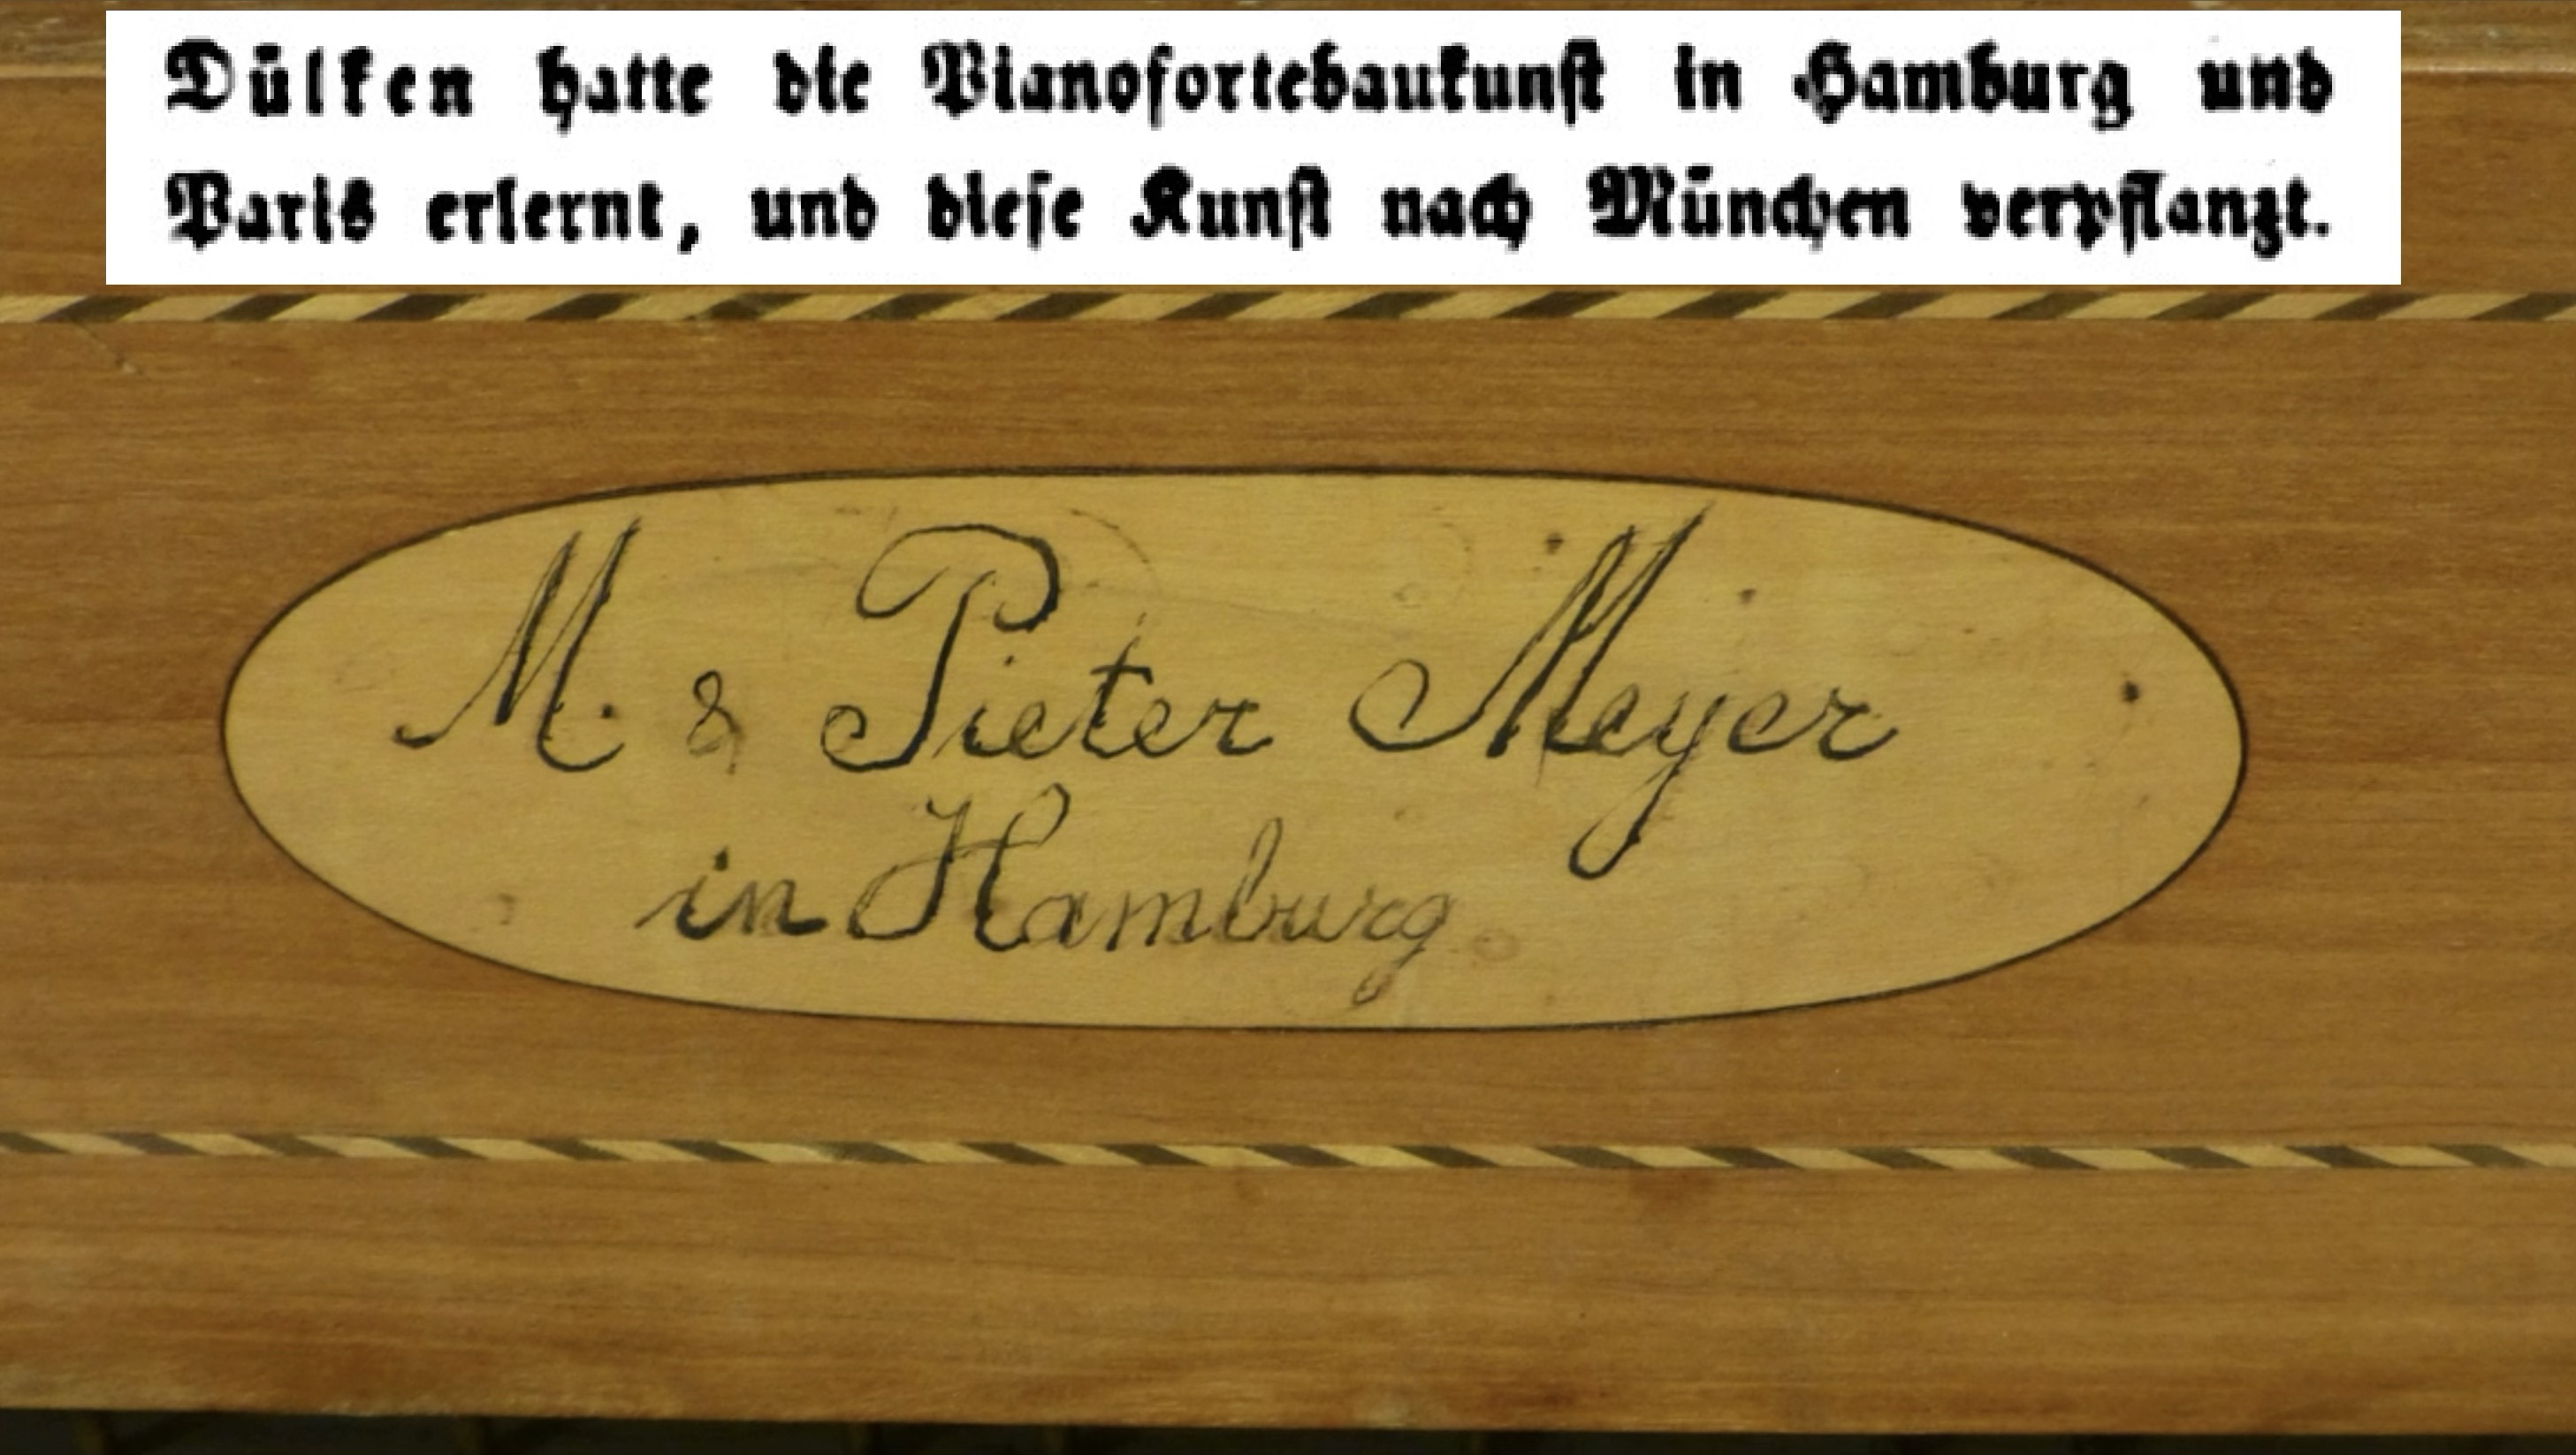 Dülken hatte die Pianofortebaukunst in Hamburg und
Paris erlernt, und diese Kunst nach München verpflanzt.
M. & Pieter Meyer
in Hamburg